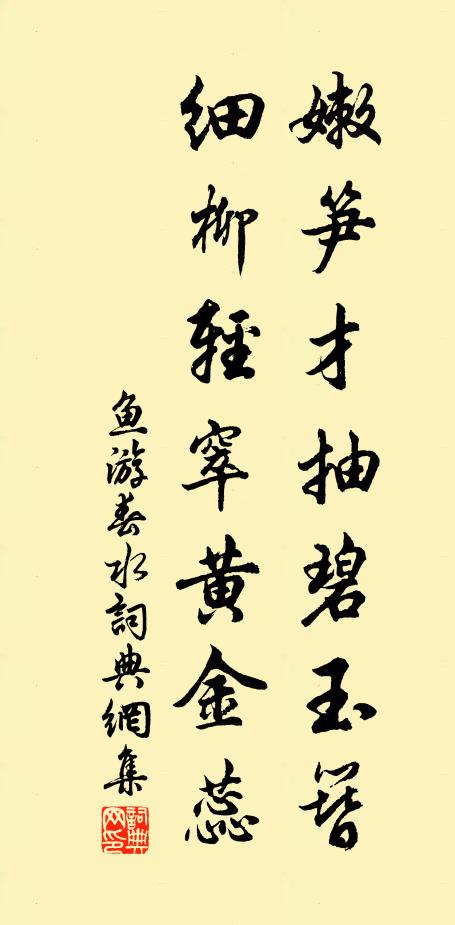 嫩笋才抽碧玉簪
细柳轻窣黄金蕊
鱼游春水詞典網集
詞典网印